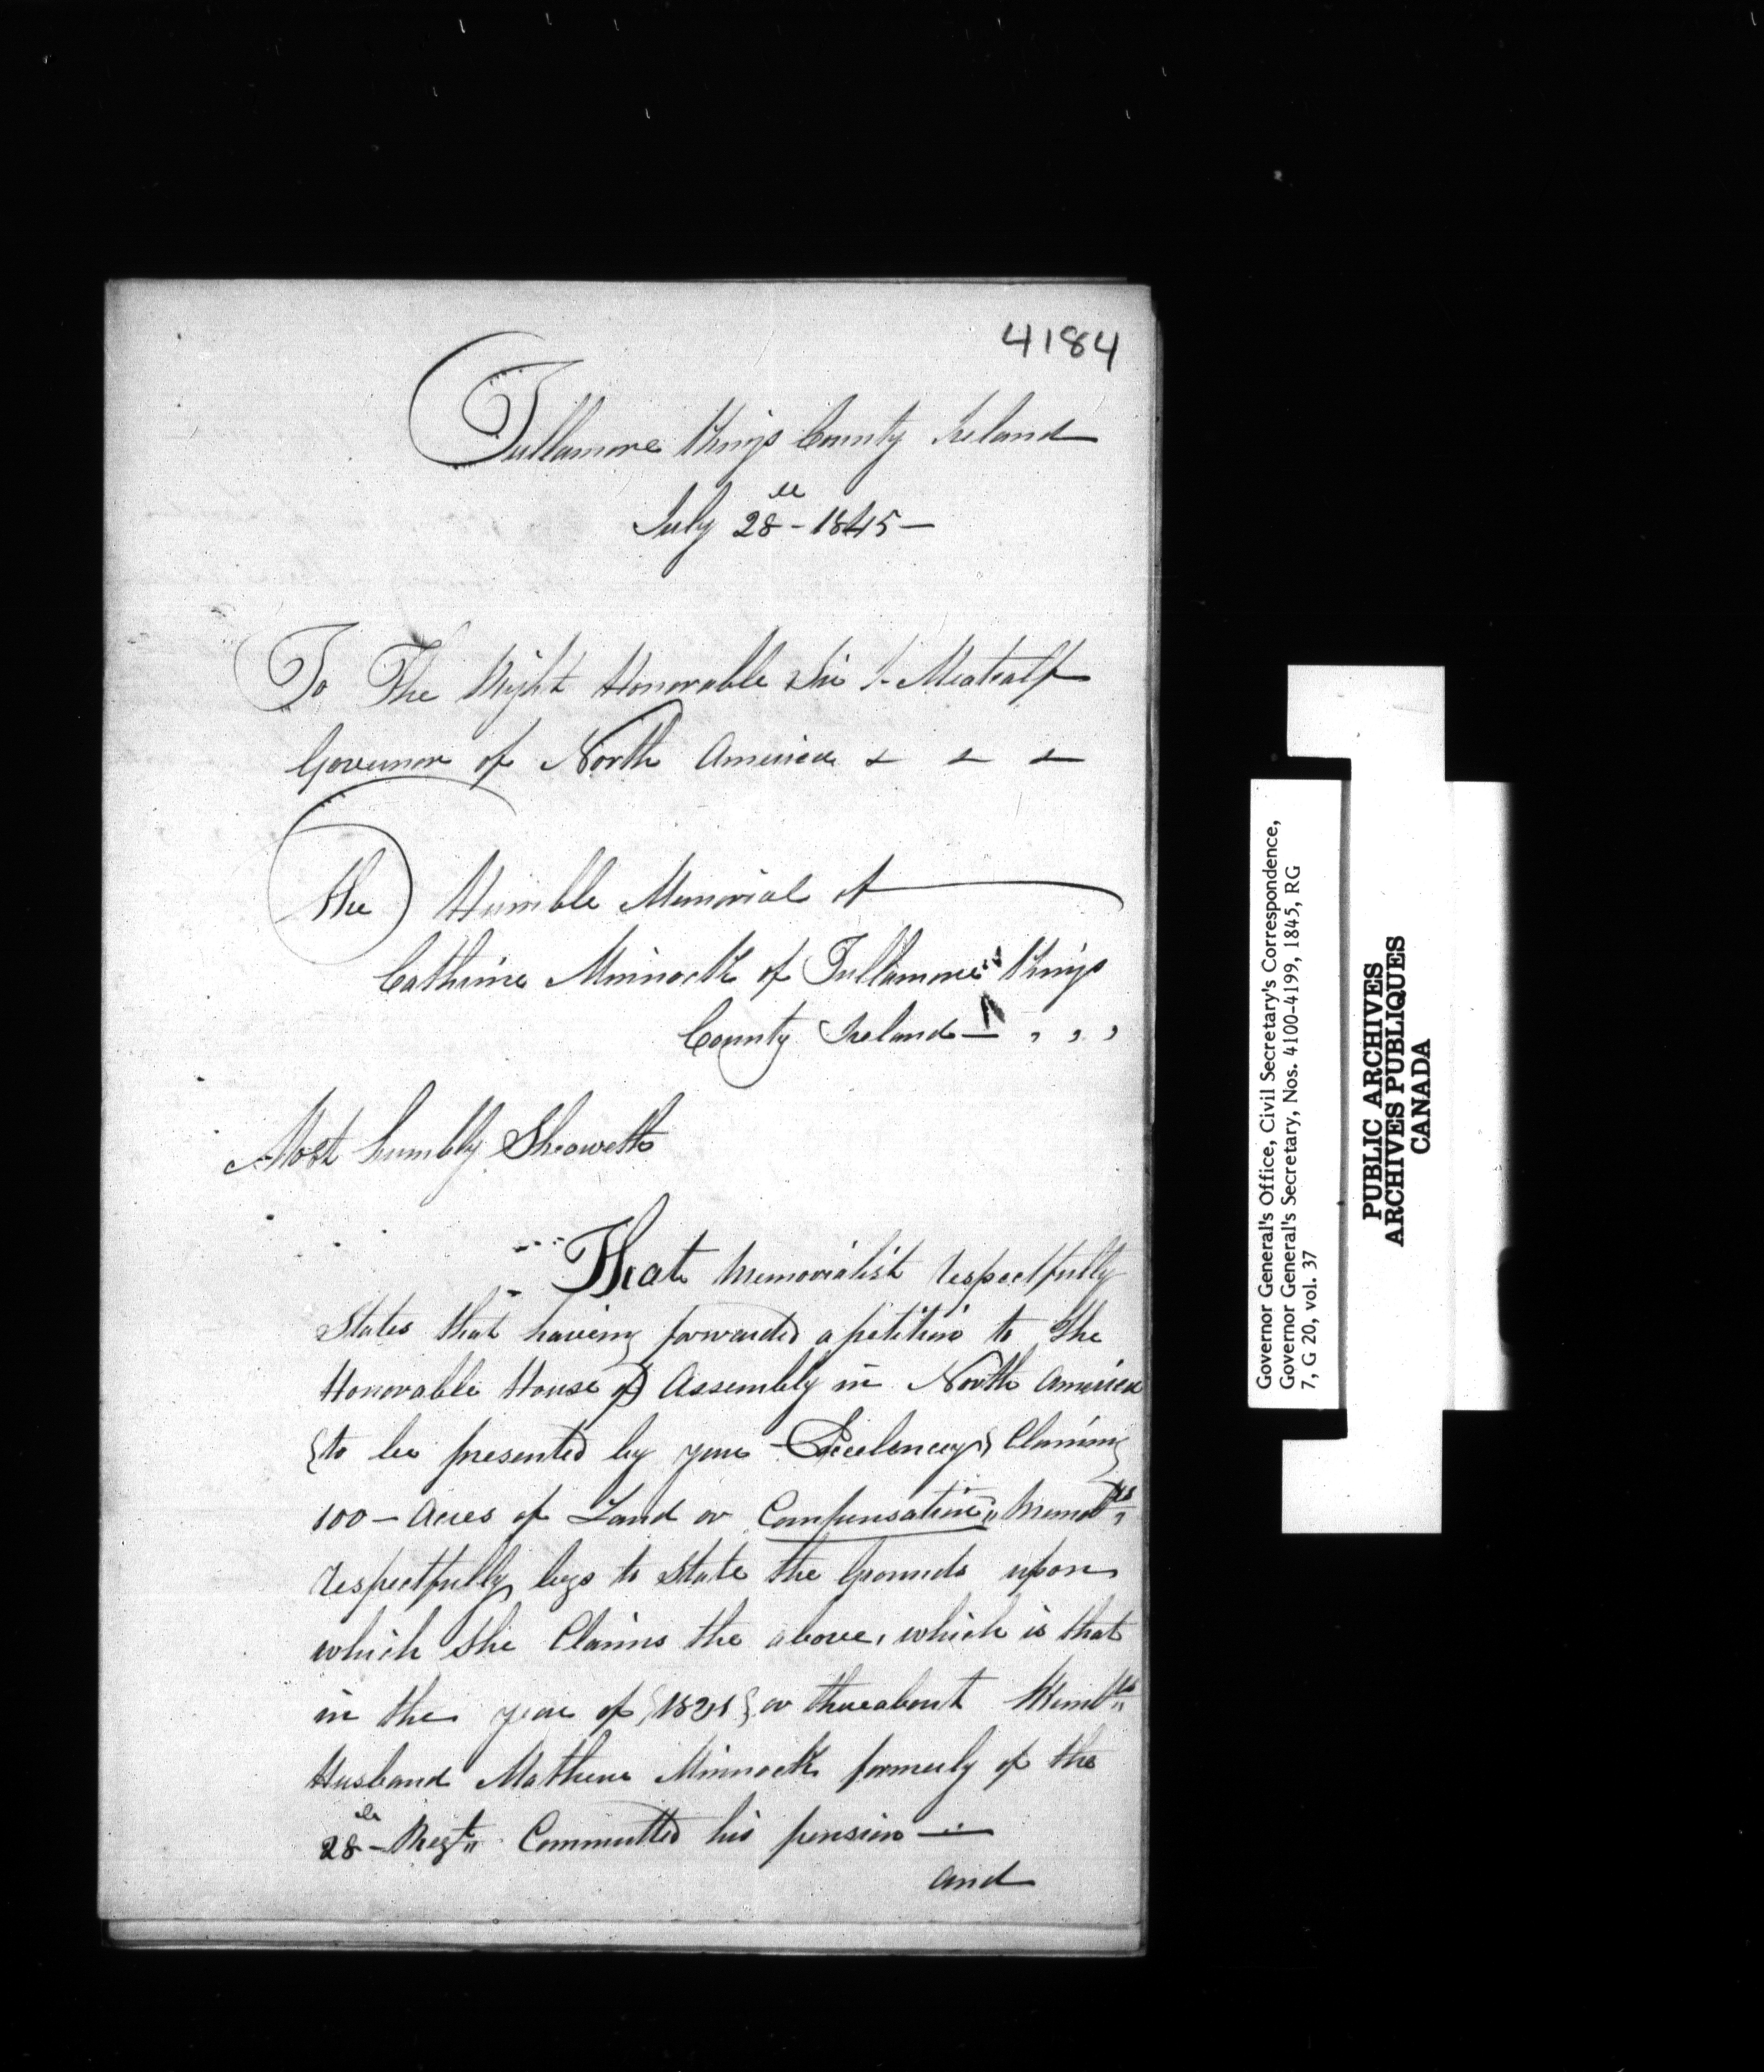 4184
Tullamore Kings County Ireland
July 28th - 1845 -
To The Right Honorable Sir Meatcalf
Governor of North America
The Humble Memorial of
Cathrine Minnock of Tullamore Kings
County Ireland
Most humbly Sheoweth
That Memorialist respectfully
States that having forwarded a petition to the
Honorable House of Assembly in North America
{to be presented by your Excelency} Claiming
100 - Acres of Land or Compensation
respectfully begs to State the Grounds upon
which she Claims the above, which is that
in the year of or thereabout
Husband Mathew Minnock formerly of the
28th - Regt Committed his pension -
and
Governor General's Office, Civil Secretary's Correspondence,
Governor General's Secretary, Nos. 4100-4199, 1845, RG
7, G 20, vol. 37
PUBLIC ARCHIVES
ARCHIVES PUBLIQUES
CANADA